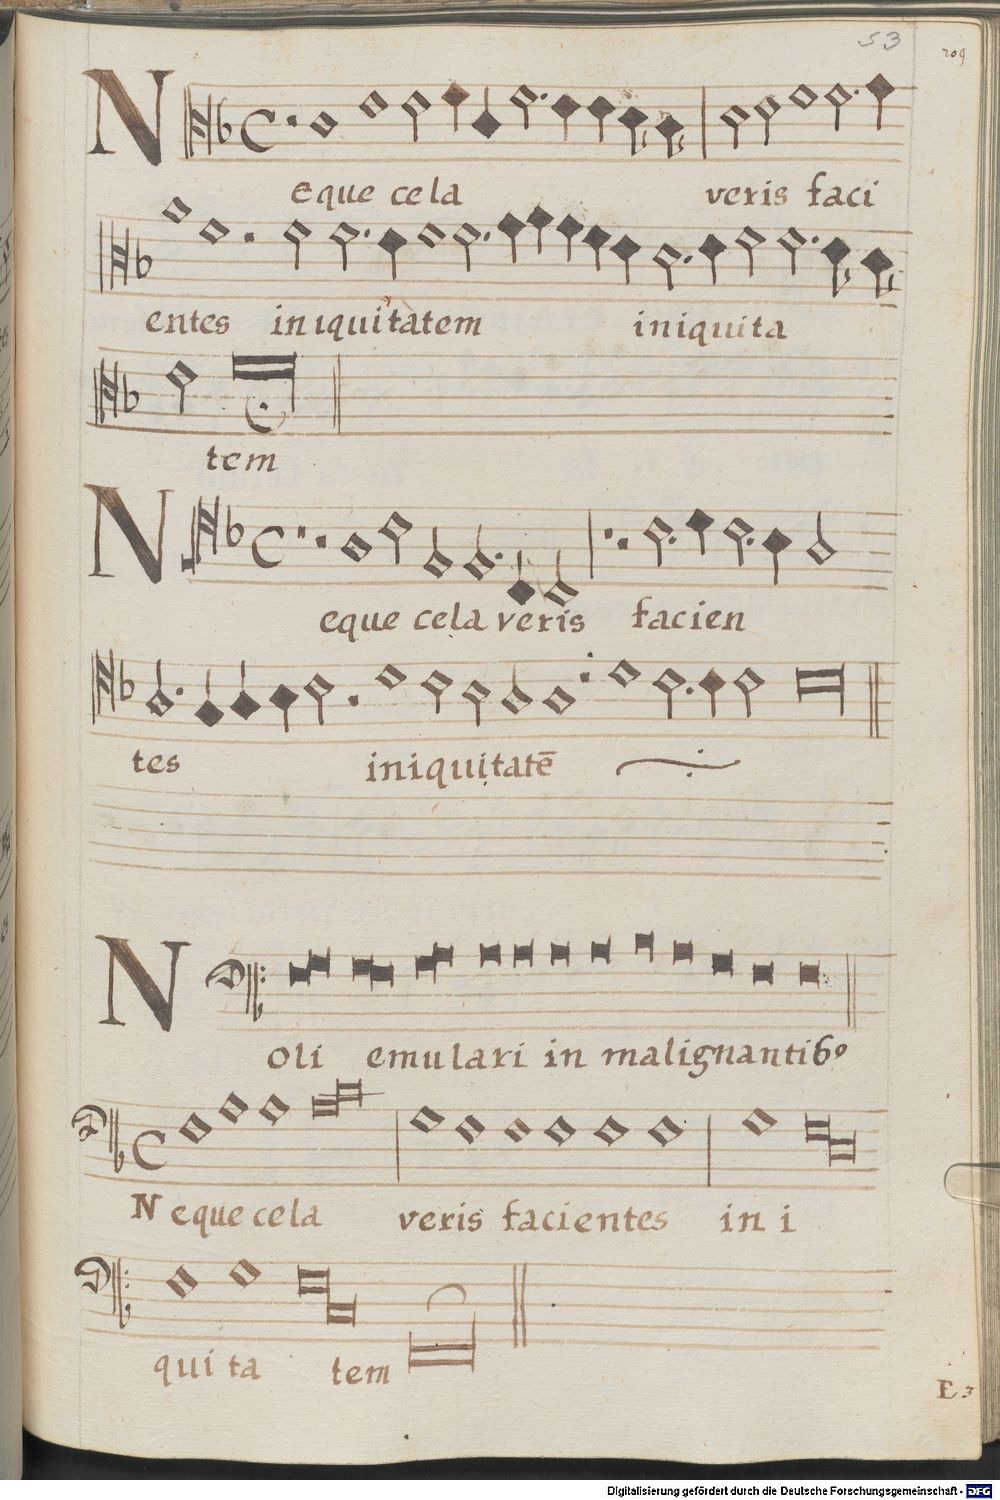 53
209
Neque cela veris faci
entes iniquitatem iniquita
tem
Neque cela veris facien
tes iniquitatē
Noli emulari in malignantibꝰ
Neque cela veris facientes in i
qui ta tem
E 3
Digitalisierung gefördert durch die Deutsche Forschungsgemeinschaft - DFG